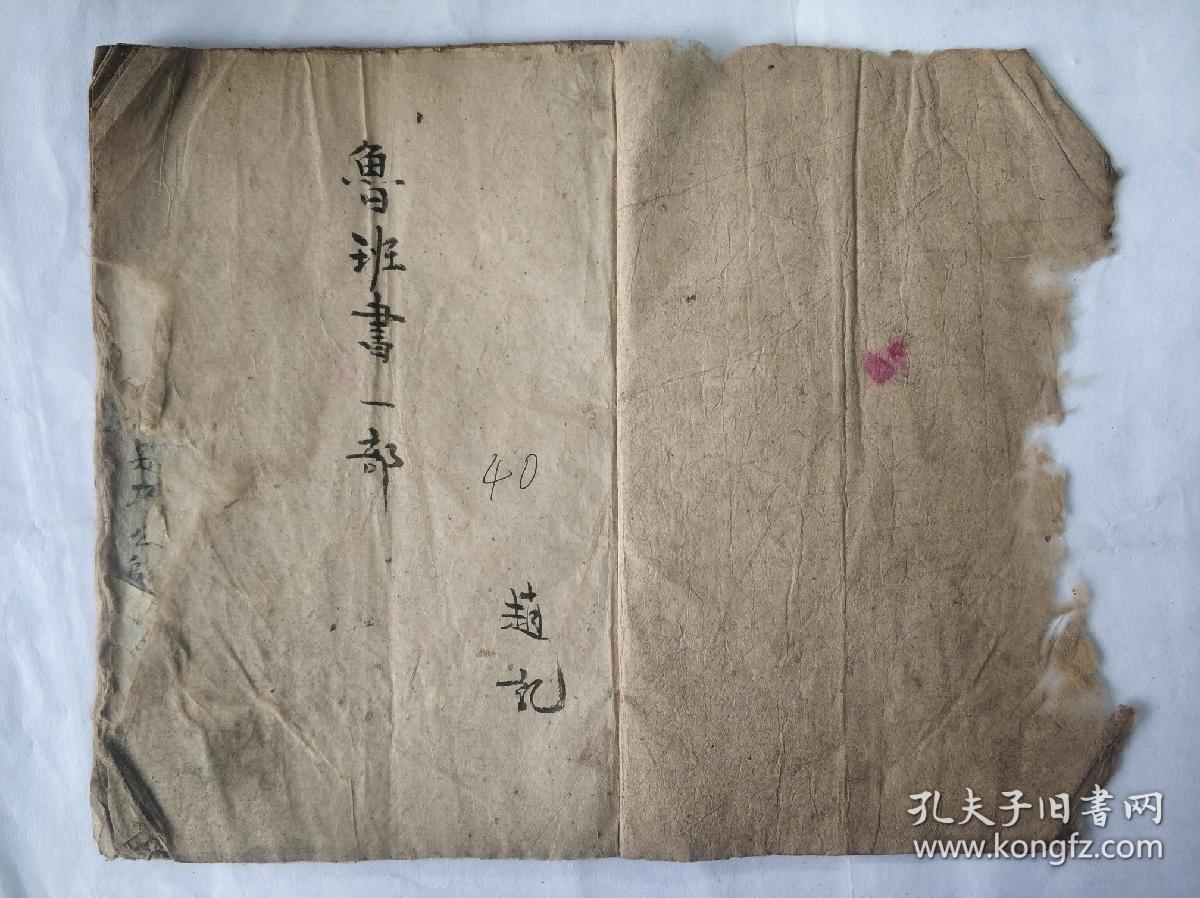 魯班書一部
40
趙記
孔夫子旧書网
www.kongfz.com